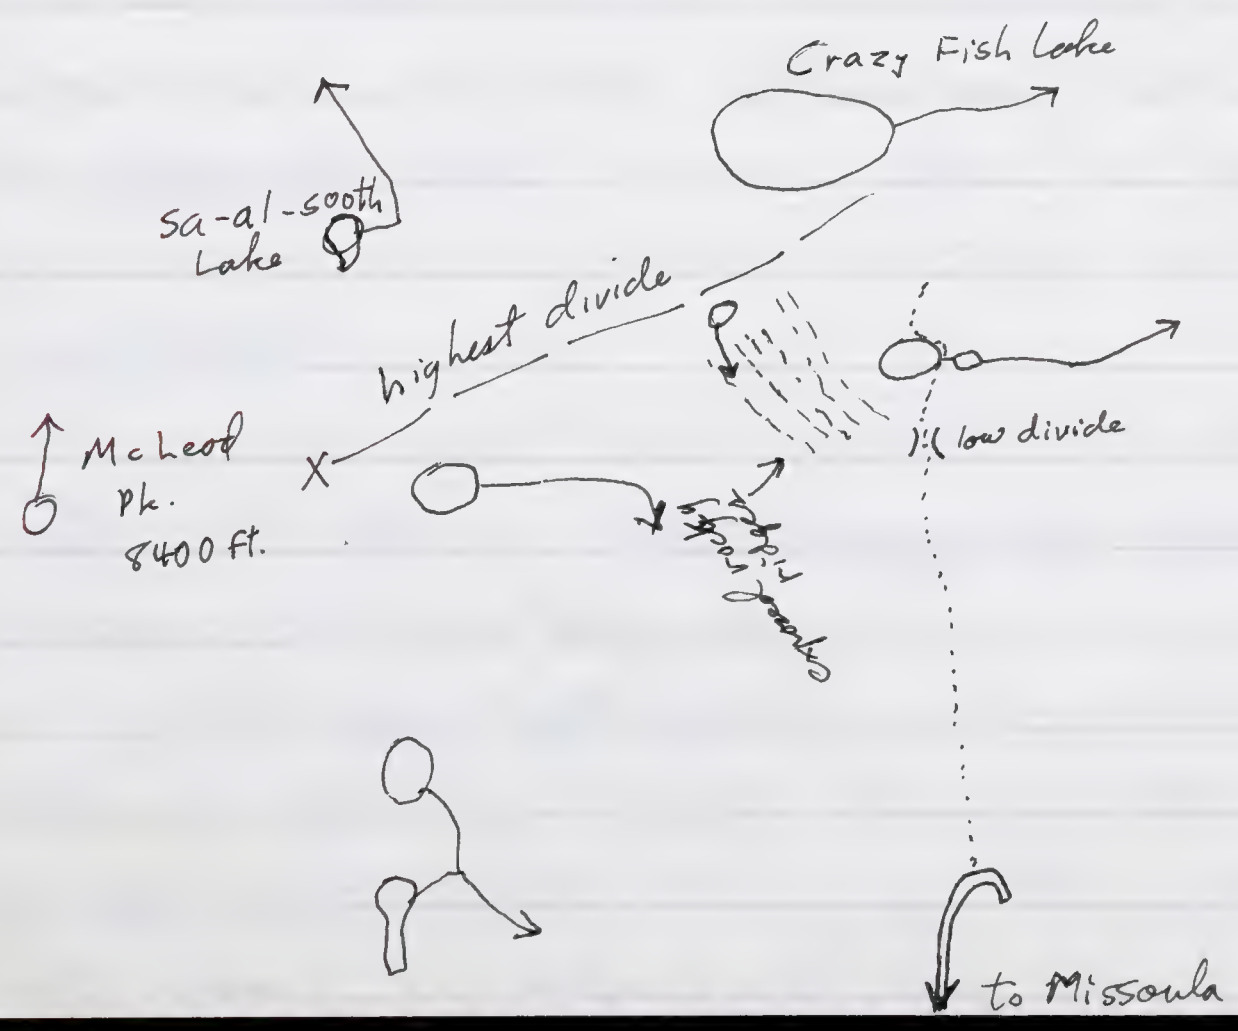 Crazy Fish Lake
Sa-al-sooth
Lake
highest divide
McLeod
Pk.
8400 ft.
low divide
to Missoula